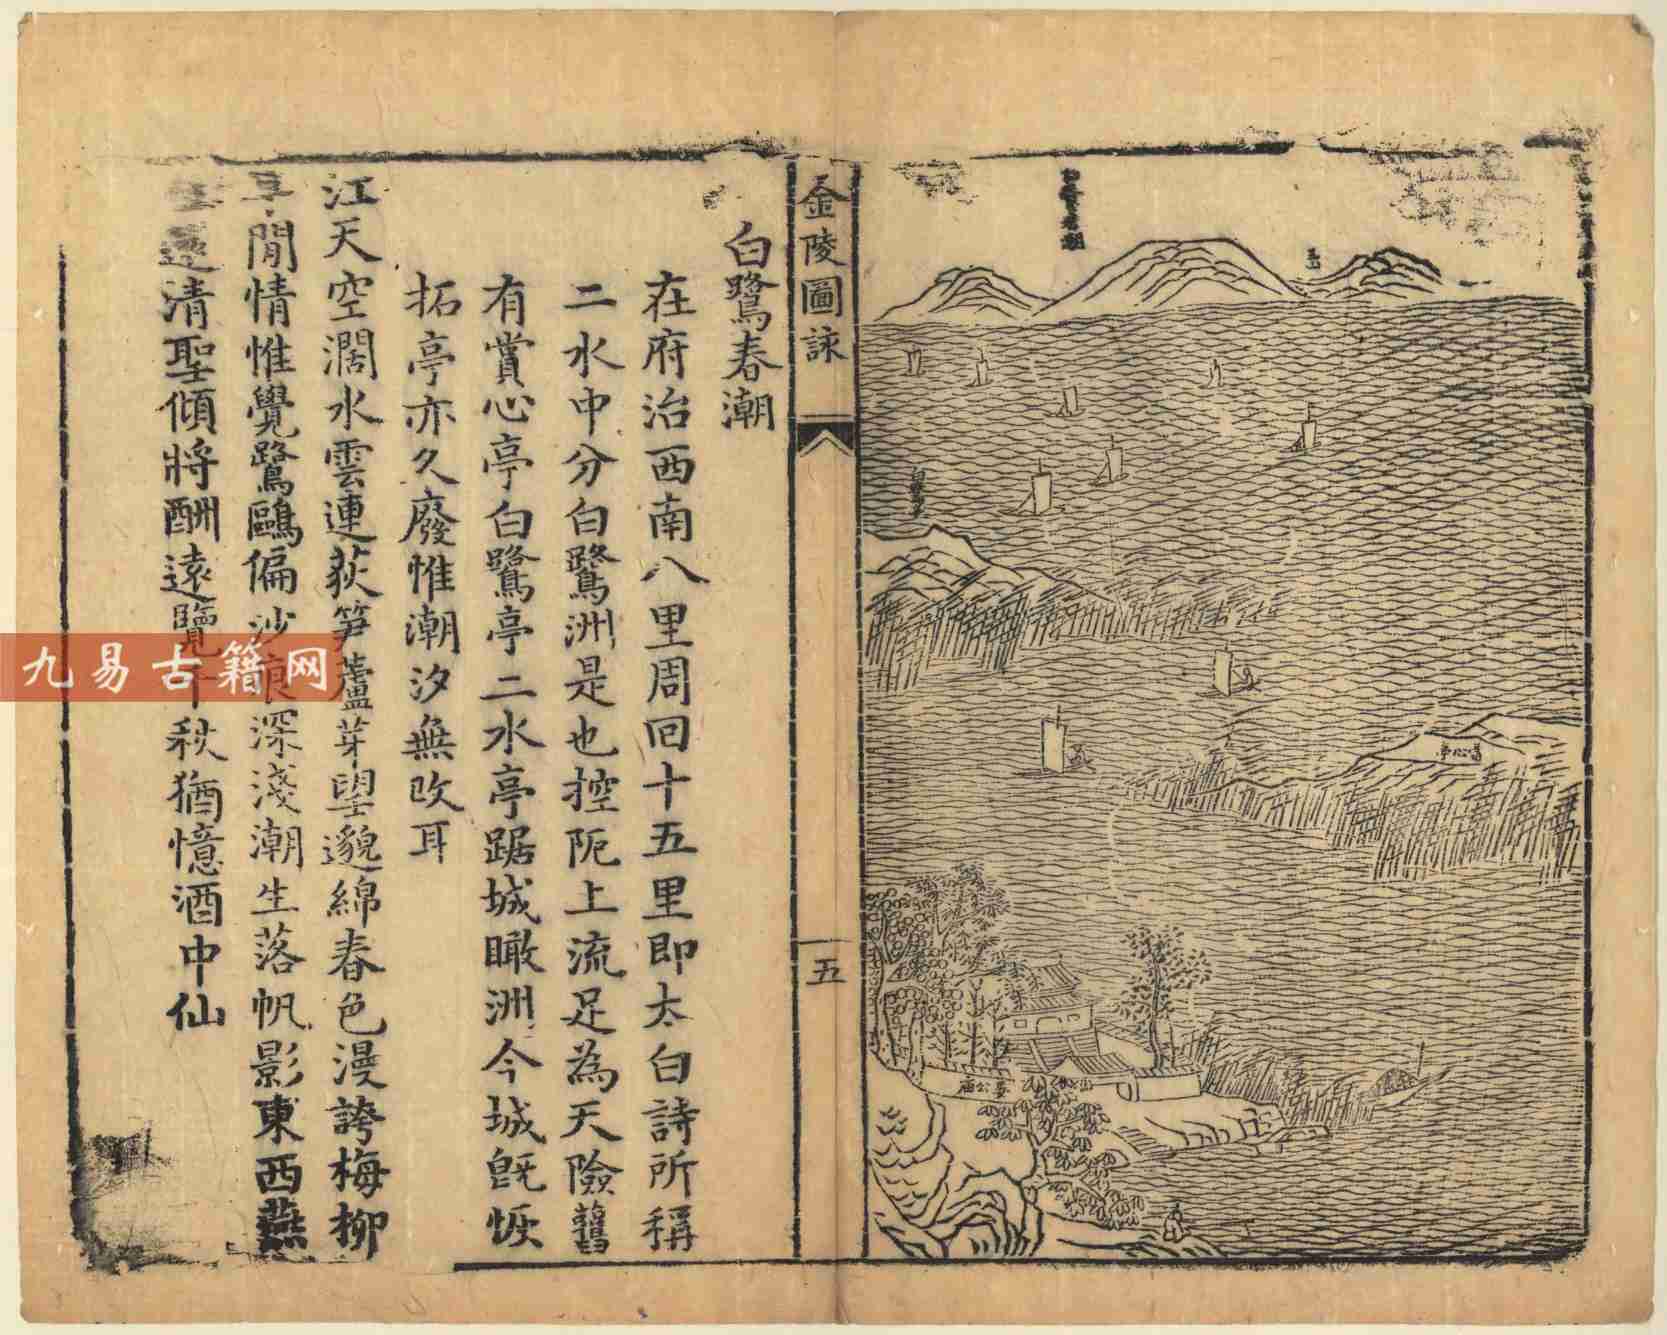 晏公庙
金陵圖詠
五
白鷺春潮
在府治西南八里周回十五里即太白詩所稱
二水中分白鷺洲是也控阨上流足為天險舊
有賞心亭白鷺亭二水亭踞城瞰洲今城既恢
拓亭亦久廢惟潮汐無改耳
江天空濶水雲連荻笋蘆芽望邈綿春色漫誇梅柳
閒情惟覺鷺鷗偏沙痕深淺潮生落帆影東西燕
清聖傾將酬遠覽千秋猶憶酒中仙
九易古籍网